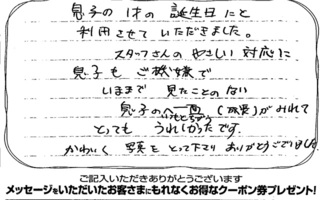 息子の1才の誕生日にと
利用させていただきました。
スタッフさんのやさしい対応に
息子もご機嫌で
いままで見たことのない
息子の一面(成長)がみれて
とってもうれしかったです。
かわいく写真をとって下さりありがとうございました。
ご記入いただきありがとうございます
メッセージをいただいたお客さまにもれなくお得なクーポン券プレゼント!